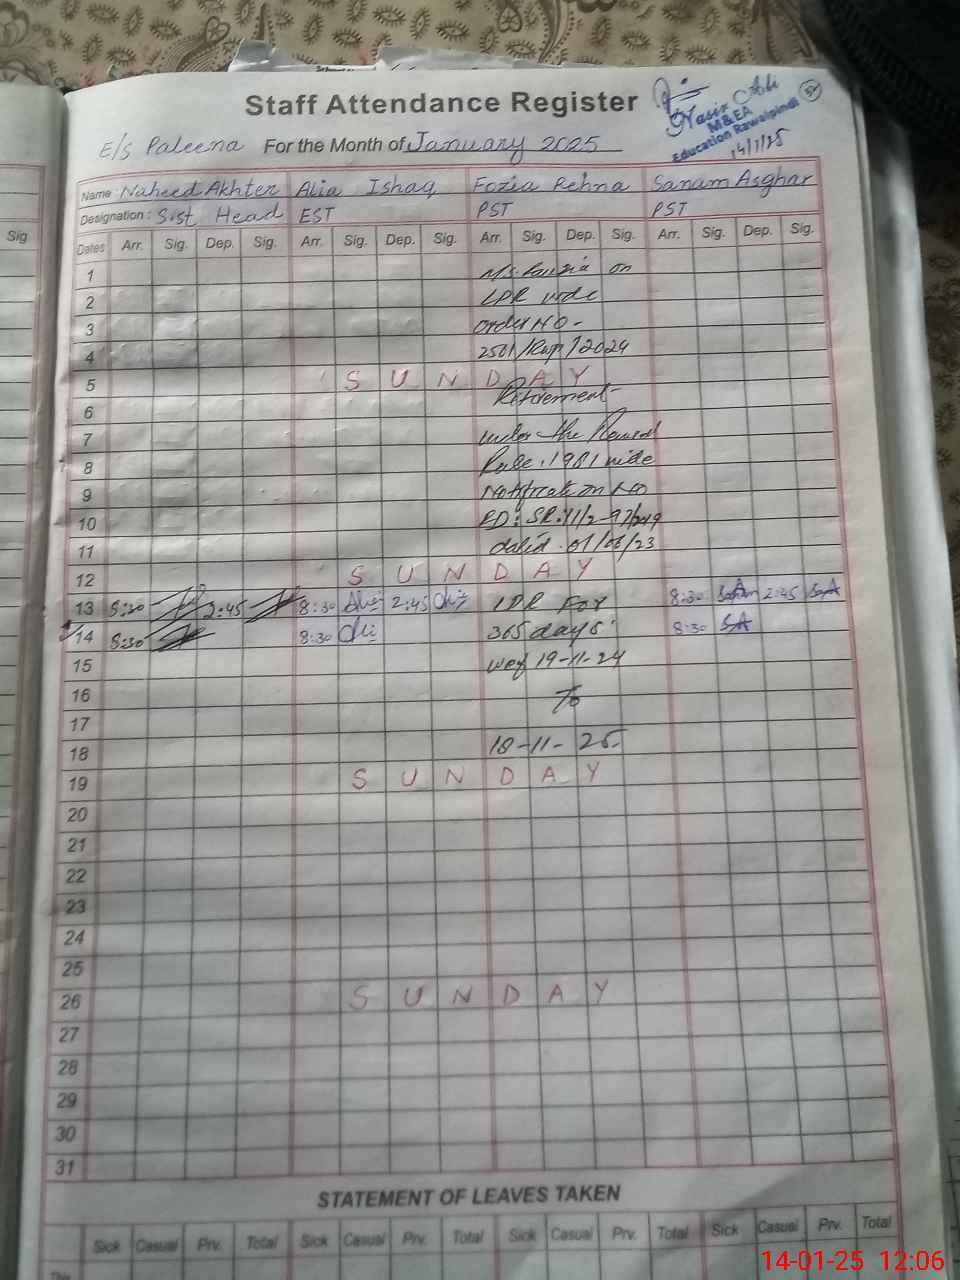 Staff Attendance Register
Nasir Ali
M&EA
Education Rawalpindi
14/1/25
E/S Paleena For the Month of January 2025
Name: Naheed Akhter Alia Ishaq Fozia Rehna Sanam Asghar
Designation: Head EST PST PST
Sig
Dates Arr. Sig. Dep. Sig. Arr. Sig. Dep. Sig. Arr. Sig. Dep. Sig. Arr. Sig. Dep. Sig.
1 on
2 LPR
3 Order NO-
4 2501/Rwp/2024
5 SUNDAY
Retirement
6
7 under the
8 Rule. 1981 vide
9 Notification No
10
11 dated
12 SUNDAY
13 8:30 2:45 8:30 2:45 LPR For 8:30 2:45 SA
14 8:30 8:30 365 days 8:30 SA
15 wef 19-11-24
16 To
17
18 18-11-25
19 SUNDAY
20
21
22
23
24
25
26 SUNDAY
27
28
29
30
31
STATEMENT OF LEAVES TAKEN
Sick Casual Prv. Total Sick Casual Prv. Total Sick Casual Prv. Total Sick Casual Prv. Total
14-01-25 12:06